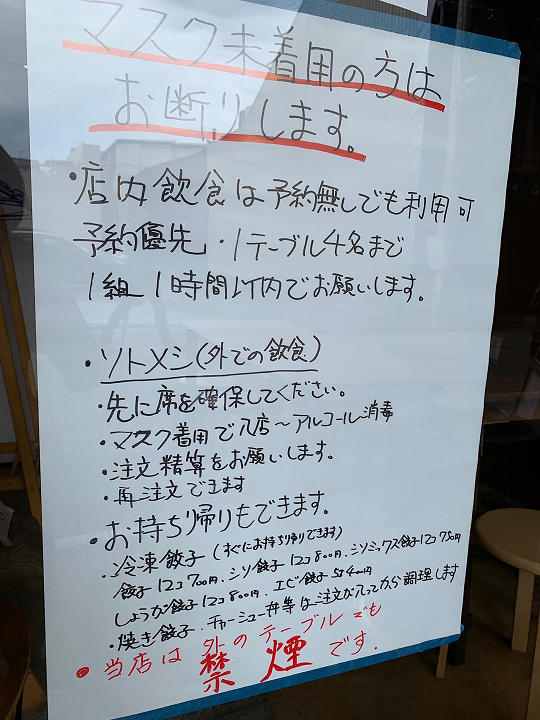 マスク未着用の方は
お断りします。
・店内飲食は予約無しでも利用可
予約優先・1テーブル4名まで
1組 1時間以内でお願いします。
・ソトメシ(外での飲食)
・先に席を確保してください。
・マスク着用で入店〜アルコール消毒
・注文精算をお願いします。
・再注文できます
・お持ち帰りもできます。
・冷凍餃子 (すぐにお持ち帰りできます)
餃子 12コ 700円、シソ餃子 12コ 800円、シソミックス餃子12コ 750円
しょうが餃子 12コ 800円、エビ餃子 5コ 400円
・焼き餃子、チャーシュー丼等は注文が入ってから調理します
・当店は外のテーブルでも
禁煙です.